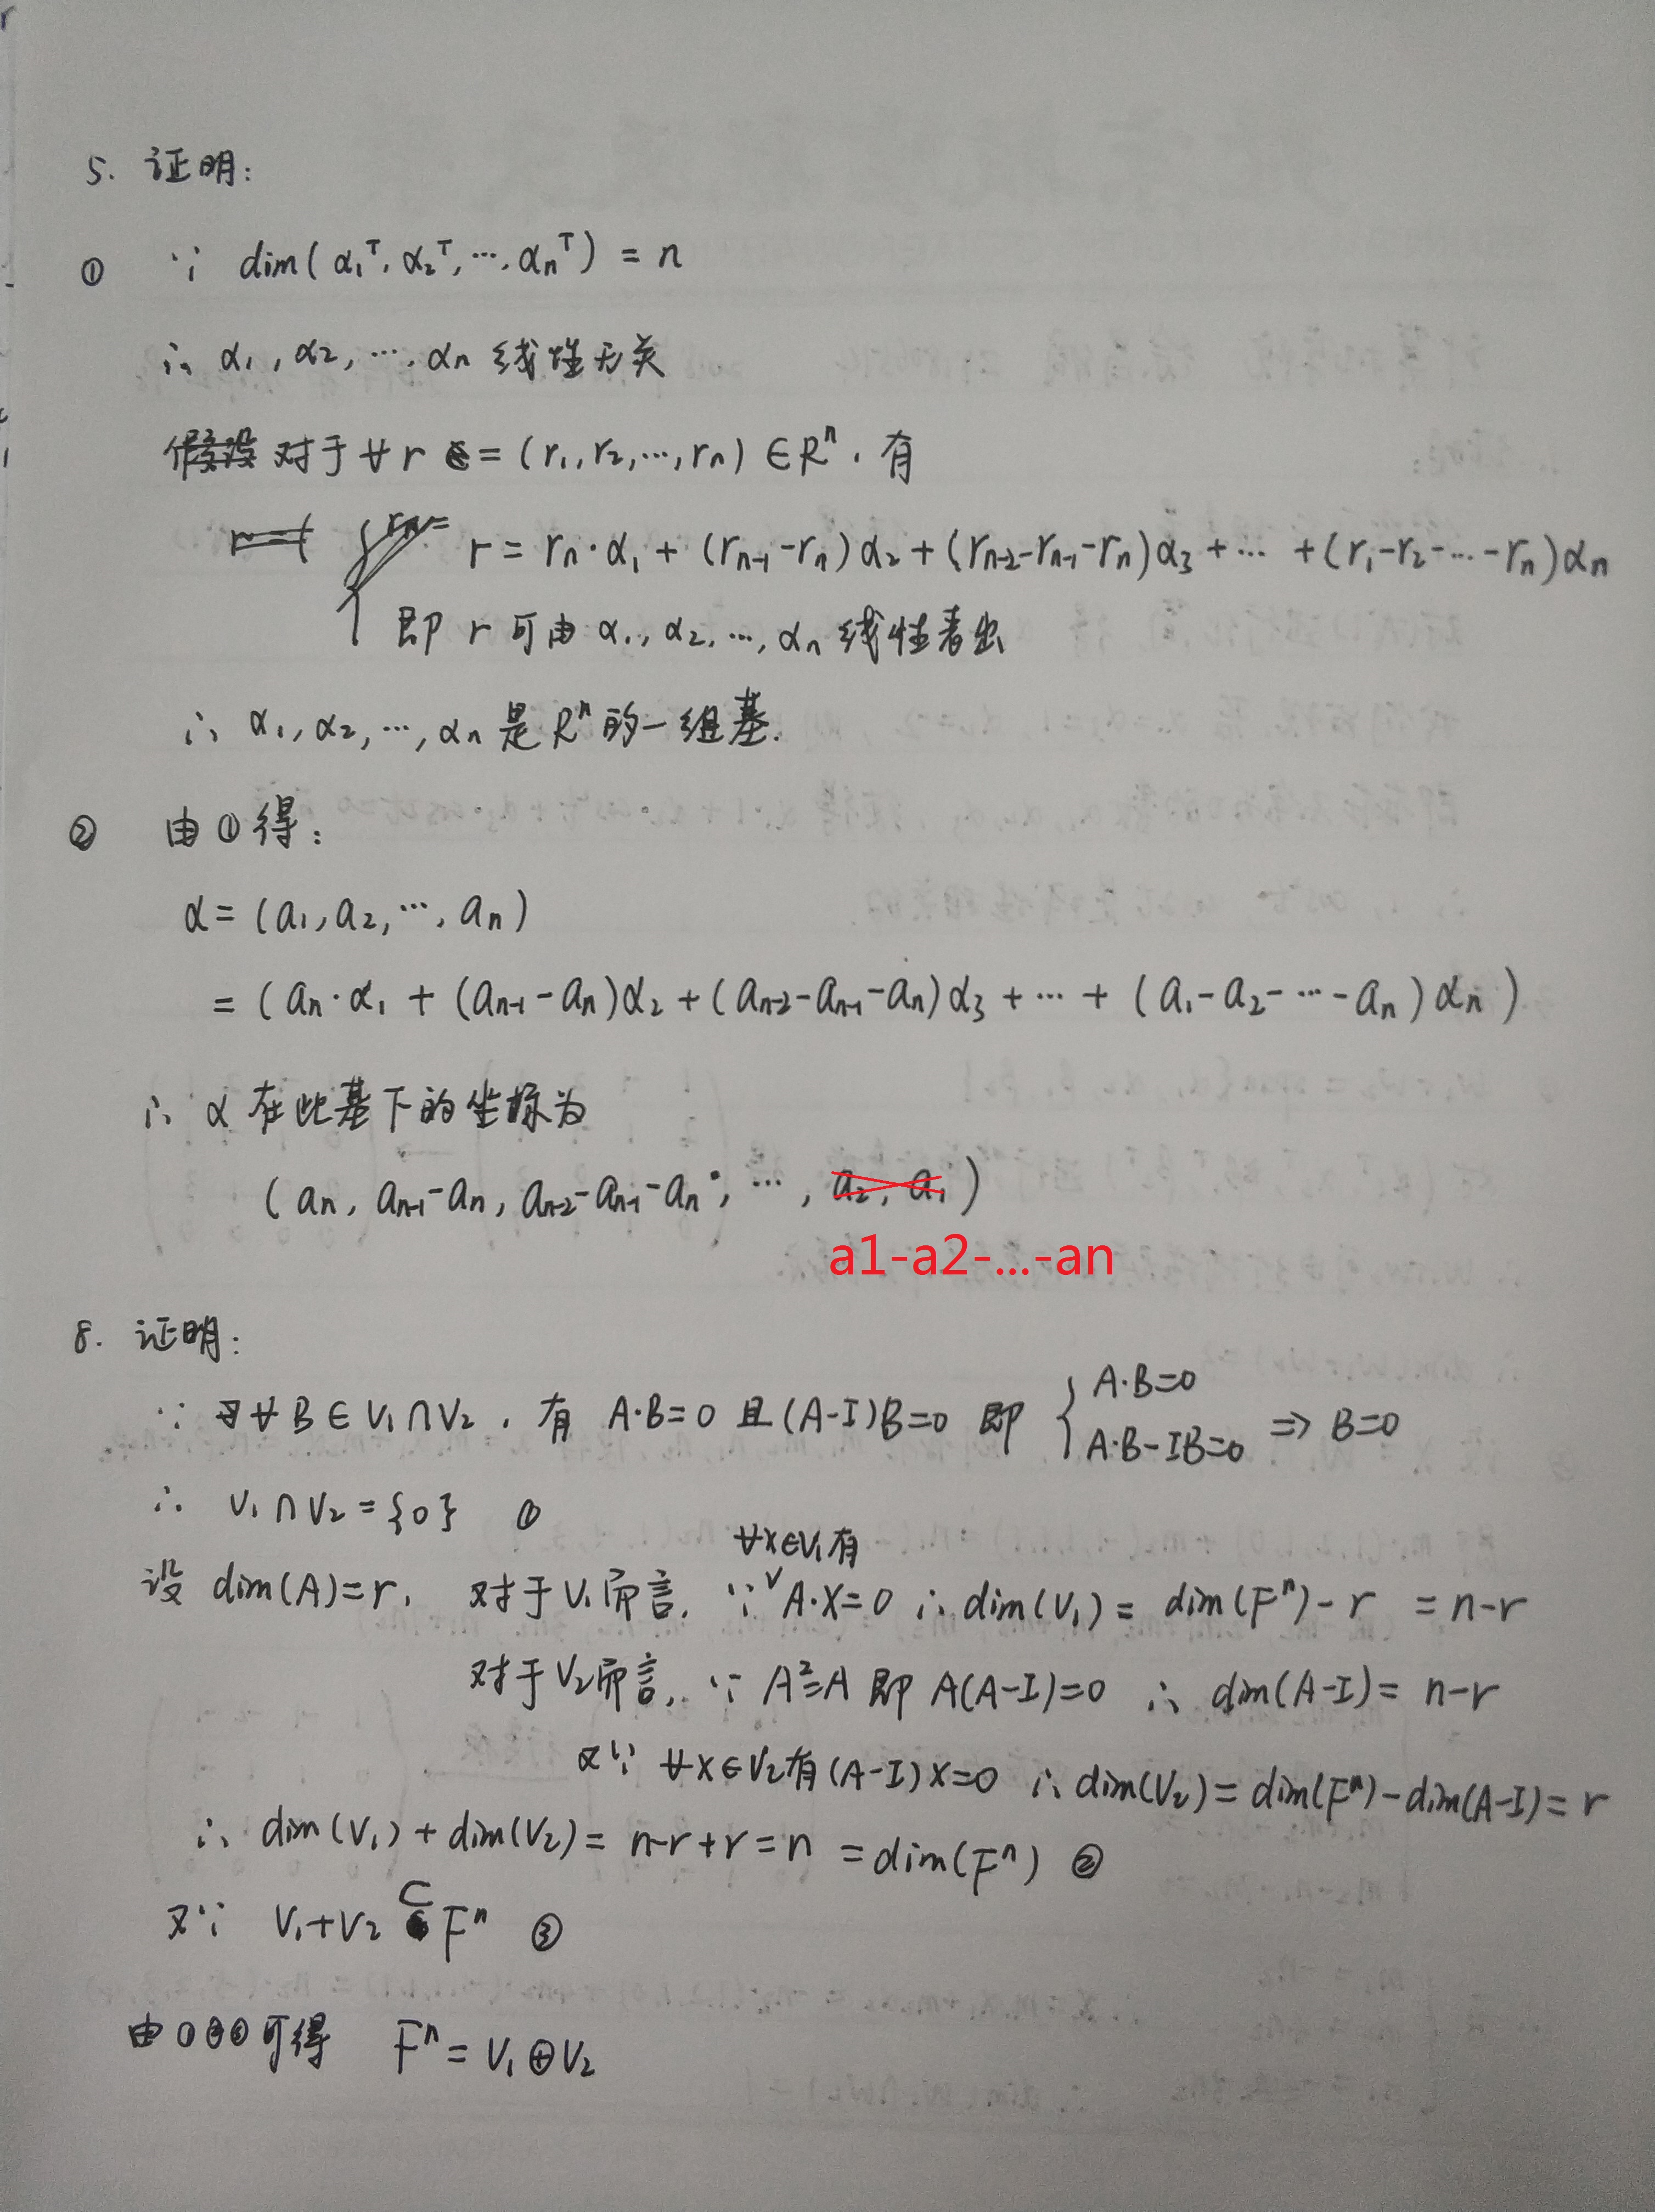 5. 证明:
① ∵ dim(α₁ᵀ, α₂ᵀ, ⋯, αₙᵀ) = n
∴ α₁, α₂, ⋯, αₙ 线性无关
假设 对于 ∀ r = (r₁, r₂, ⋯, rₙ) ∈ Rⁿ, 有
r = rₙ·α₁ + (rₙ₋₁-rₙ)α₂ + (rₙ₋₂-rₙ₋₁-rₙ)α₃ + ⋯ + (r₁-r₂-⋯-rₙ)αₙ
即 r 可由 α₁, α₂, ⋯, αₙ 线性表出
∴ α₁, α₂, ⋯, αₙ 是 Rⁿ 的一组基.
② 由①得:
α = (a₁, a₂, ⋯, aₙ)
= (aₙ·α₁ + (aₙ₋₁-aₙ)α₂ + (aₙ₋₂-aₙ₋₁-aₙ)α₃ + ⋯ + (a₁-a₂-⋯-aₙ)αₙ)
∴ α 在此基下的坐标为
(aₙ, aₙ₋₁-aₙ, aₙ₋₂-aₙ₋₁-aₙ, ⋯, a₂, a₁)
a1-a2-...-an
8. 证明:
∵ ∀ B ∈ V₁∩V₂, 有 A·B=0 且 (A-I)B=0 即 { A·B=0 A·B-IB=0 ⇒ B=0
∴ V₁∩V₂={0} ①
∀X∈V₁有
设 dim(A)=r, 对于V₁而言, ∵ A·X=0 ∴ dim(V₁) = dim(Fⁿ)-r = n-r
对于V₂而言, ∵ A²=A 即 A(A-I)=0 ∴ dim(A-I)= n-r
又∵ ∀X∈V₂有(A-I)X=0 ∴ dim(V₂)= dim(Fⁿ)-dim(A-I)= r
∴ dim(V₁)+dim(V₂)= n-r+r=n =dim(Fⁿ) ②
又∵ V₁+V₂ ⊂ Fⁿ ③
由①②③可得 Fⁿ= V₁⊕V₂